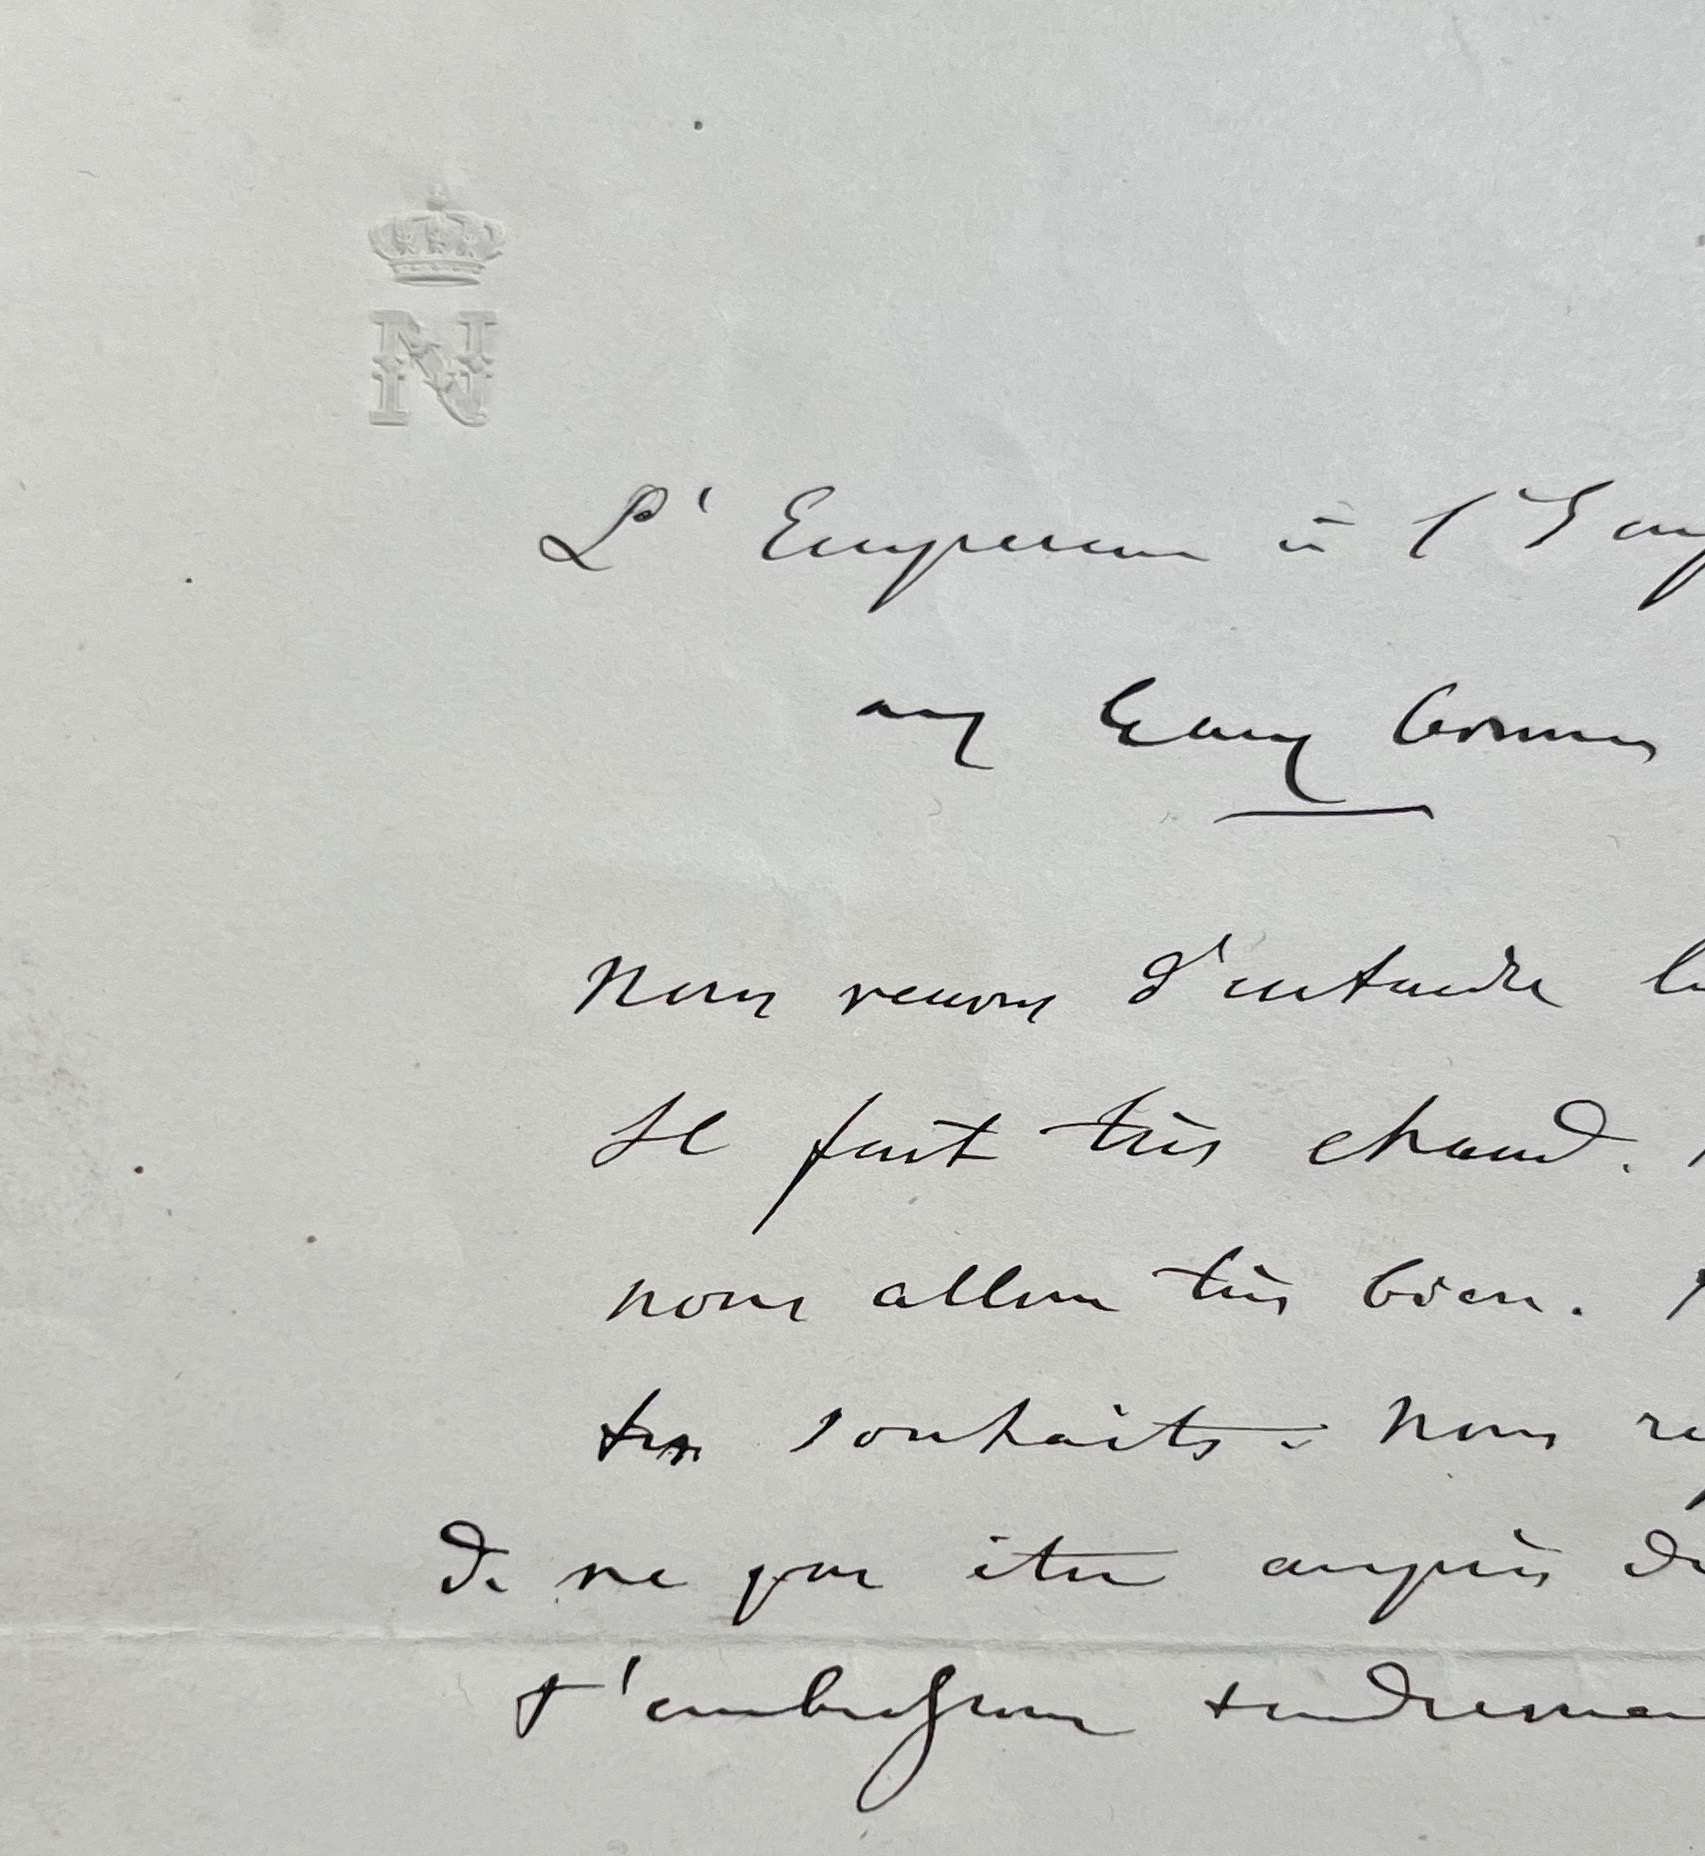 N
L'Empereur à l'Imp
aux Eaux bonnes
Nous venons d'entendre la
Il fait très chaud.
nous allons très bien.
tes souhaits. Nous re
de ne pas être auprès de
t'embrassons tendremen